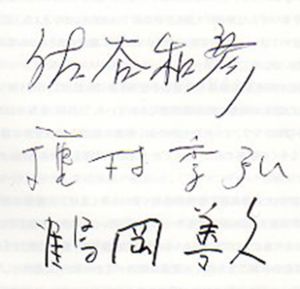 佐谷和彦
種村季弘
鶴岡善久